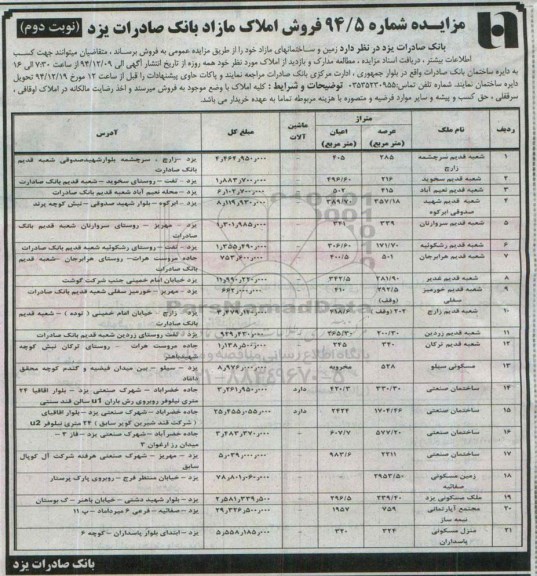 مزایده شماره ۹۴/۵ فروش املاک مازاد بانک صادرات یزد (نوبت دوم)
بانک صادرات یزد در نظر دارد زمین و ساختمانهای مازاد خود را از طریق مزایده عمومی به فروش برساند ، متقاضیان میتوانند جهت کسب
اطلاعات بیشتر ، دریافت اسناد مزایده ، مطالعه مدارک و بازدید از املاک مورد نظر خود همه روزه از تاریخ انتشار آگهی الی ۹۴/۱۲/۰۹ از ساعت ۷:۳۰ الی ۱۶
به دایره ساختمان بانک صادرات واقع در بلوار جمهوری ، اداره مرکزی بانک صادرات مراجعه نمایند و پاکات حاوی پیشنهادات را قبل از ساعت ۱۲ مورخ ۹۴/۱۲/۱۹ تحویل
دایره ساختمان نمایند. شماره تلفن تماس: ۰۳۵۳۵۲۳۰۹۵۵ توضیحات و شرایط : کلیه املاک با وضع موجود به فروش میرسند و اخذ رضایت مالکانه در املاک اوقافی ،
سرقفلی ، حق کسب و پیشه و سایر موارد فرضیه و متصوره با هزینه مربوطه تماما به عهده خریدار می باشد.
ردیف نام ملک متراژ عرصه (متر مربع) اعیان (متر مربع) ماشین آلات مبلغ کل آدرس
۱ شعبه قدیم سرچشمه زارچ ۲۸۵ ۴۰۵ - ۲٫۴۶۲٫۹۵۰٫۰۰۰ یزد - زارچ ، سرچشمه بلوار شهیدصدوقی شعبه قدیم بانک صادارت
۲ شعبه قدیم سخوید ۲۱۶ ۲۹۶/۶۰ - ۱٫۸۸۳٫۷۰۰٫۰۰۰ یزد - تفت - روستای سخوید - شعبه قدیم بانک صادارت
۳ شعبه قدیم نعیم آباد ۲۱۵ ۵۰۲ - ۶٫۱۰۲٫۷۰۰٫۰۰۰ یزد - محله نعیم آباد شعبه قدیم بانک صادرات
۴ شعبه قدیم شهید صدوقی ابرکوه ۲۵۷/۱۸ ۳۸۹/۷۰ - ۸٫۱۱۹٫۹۳۰٫۰۰۰ یزد - ابرکوه - بلوار شهید صدوقی - نبش کوچه پرند
۵ شعبه قدیم سروازنان ۳۳۹ ۳۴۱ - ۱٫۳۰۱٫۹۸۵٫۰۰۰ یزد - مهریز - روستای سروازنان شعبه قدیم بانک صادرات
۶ شعبه قدیم رشکوئیه ۱۷۱/۷۰ ۳۰۶/۶۰ - ۱٫۳۵۵٫۲۹۰٫۰۰۰ یزد - تفت - روستای رشکوئیه شعبه قدیم بانک صادرات
۷ شعبه قدیم هرابرجان ۵۰۱ ۴۰۰/۵ - ۷۵۳٫۷۰۰٫۰۰۰ جاده مروست هرات - روستای هرابرجان - شعبه قدیم بانک صادرات
۸ شعبه قدیم غدیر ۲۸۱/۹۰ ۳۲۲/۵ - ۱۱٫۹۹۰٫۲۲۰٫۰۰۰ یزد خیابان امام خمینی جنب شرکت گوشت
۹ شعبه قدیم خورمیز سفلی ۲۹۲/۵ (وقف) ۲۱۰ - ۶۶۲٫۰۰۰٫۰۰۰ یزد - مهریز - خورمیز سفلی شعبه قدیم بانک صادرات
۱۰ شعبه قدیم زارچ ۲۰۲ (وقف) ۲۱۸/۶۰ - یزد - زارچ - خیابان امام خمینی شعبه قدیم بانک صادارت
۱۱ شعبه قدیم زردین ۲۰۰/۳۰ ۲۶۵/۳۰ - ۹۶۹٫۴۳۰٫۰۰۰ یزد - تفت روستای زردین شعبه قدیم بانک صادرات
۱۲ شعبه قدیم ترکان ۳۴۰ ۲۴۵ - ۱٫۱۳۸٫۵۰۰٫۰۰۰ جاده مروست هرات - روستای ترکان نبش کوچه شهیدباهنر
۱۳ مسکونی سیلو ۵۲۸ مخروبه - ۸٫۹۷۶٫۰۰۰٫۰۰۰ یزد - سیلو - بین میدان فهمیده و گندم کوچه محقق داماد
۱۴ ساختمان صنعتی ۳۳۰/۳۰ ۴۲۰/۳ دارد ۳٫۲۶۱٫۹۵۰٫۰۰۰ جاده خضرآباد - شهرک صنعتی یزد - بلوار اقاقیا ۲۴ متری نیلوفر روبروی رش باران u1 سالن قند سنتی
۱۵ ساختمان صنعتی ۱۷۰۴/۴۶ ۲۴۲۲ دارد ۲۵٫۴۵۵٫۰۵۵٫۰۰۰ جاده خضرآباد - شهرک صنعتی یزد - بلوار اقاقیای ( شرکت قند شیرین کویر سابق ) ۲۴ متری نیلوفر u2
۱۶ ساختمان صنعتی ۵۷۷/۲۰ ۶۰۷/۷ - ۳٫۲۸۳٫۳۷۰٫۰۰۰ جاده خضر آباد - شهرک صنعتی یزد - فاز ۳ - میدان رز ارغوان ۳
۱۷ ساختمان صنعتی ۲۲۱۱ ۹۸۳/۶ - ۵٫۰۳۹٫۰۰۰٫۰۰۰ یزد - مهریز - شهرک صنعتی هرفته شرکت آل کوپال سابق
۱۸ زمین مسکونی صفائیه ۲۹۵۳/۵۰ - - ۷۸٫۸۰۱٫۰۶۰٫۰۰۰ یزد - خیابان منتظر فرج - روبروی پارک پرستار
۱۹ ملک مسکونی یزد ۲۳۹/۴۰ ۲۹۶/۵ - ۲٫۵۸۱٫۳۳۹٫۵۰۰ یزد - بلوار شهید دشتی - خیابان باهنر - ک بوستان
۲۰ مجتمع آپارتمانی نیمه ساز ۷۵۹ ۱۹۵۷ - ۲۹٫۳۲۶٫۵۰۰٫۰۰۰ یزد - صفائیه - فرعی ۶ میرداماد - پ ۱۱
۲۱ منزل مسکونی پاسداران ۳۲۴ ۳۲۰ - ۵٫۵۵۸٫۱۸۵٫۰۰۰ یزد - ابتدای بلوار پاسداران - کوچه ۶
بانک صادرات یزد